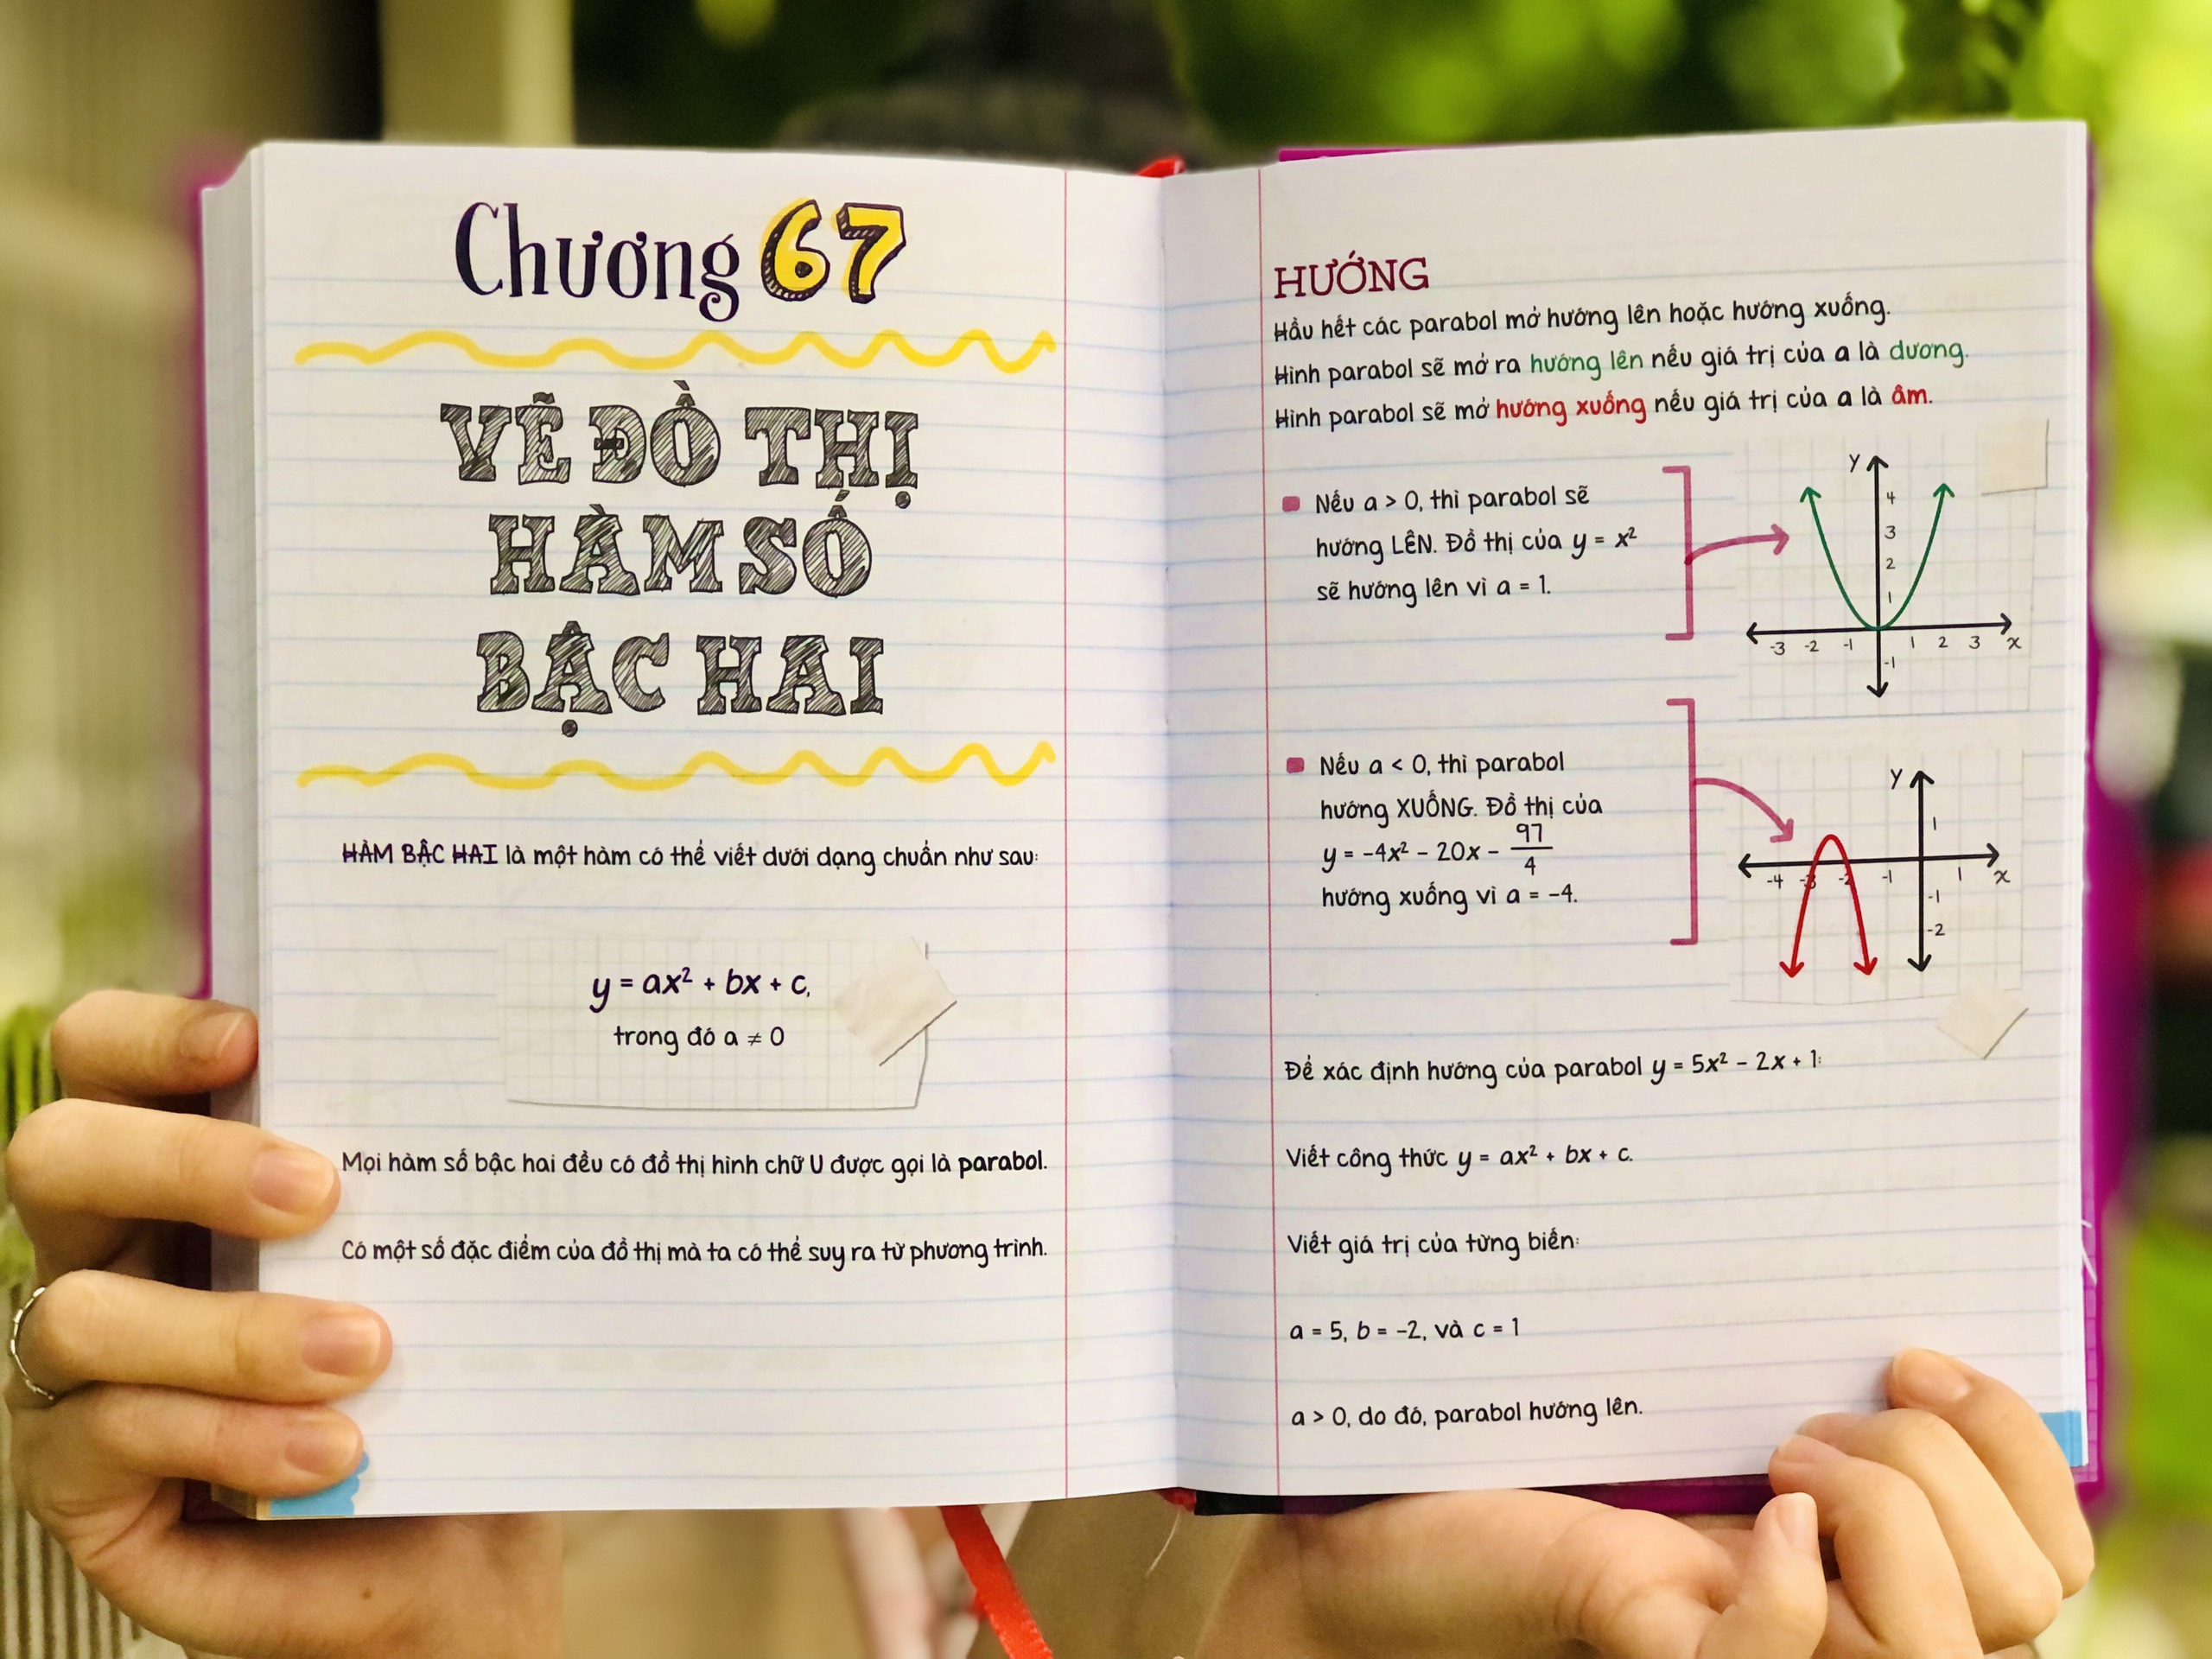 Chương 67
VẼ ĐỒ THỊ
HÀM SỐ
BẬC HAI
HÀM BẬC HAI là một hàm có thể viết dưới dạng chuẩn như sau:
y = ax² + bx + c,
trong đó a ≠ 0
Mọi hàm số bậc hai đều có đồ thị hình chữ U được gọi là parabol.
Có một số đặc điểm của đồ thị mà ta có thể suy ra từ phương trình.
HƯỚNG
Hầu hết các parabol mở hướng lên hoặc hướng xuống.
Hình parabol sẽ mở ra hướng lên nếu giá trị của a là dương.
Hình parabol sẽ mở hướng xuống nếu giá trị của a là âm.
Nếu a > 0, thì parabol sẽ
hướng LÊN. Đồ thị của y = x²
sẽ hướng lên vì a = 1.
y
4
3
2
1
-3 -2 -1 1 2 3 x
-1
Nếu a < 0, thì parabol
hướng XUỐNG. Đồ thị của
y = -4x² - 20x - 97/4
hướng xuống vì a = -4.
y
1
-4 -3 -2 -1 1 x
-1
-2
Để xác định hướng của parabol y = 5x² - 2x + 1:
Viết công thức y = ax² + bx + c.
Viết giá trị của từng biến:
a = 5, b = -2, và c = 1
a > 0, do đó, parabol hướng lên.